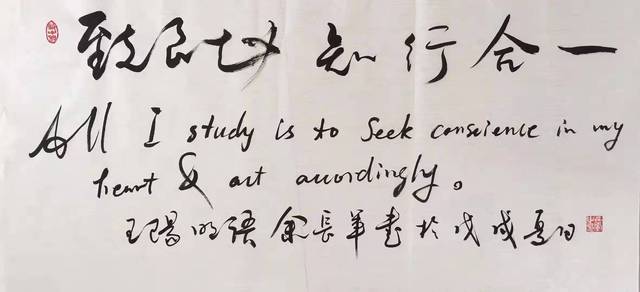 致良知 知行合一
All I study is to Seek conscience in my
heart & act accordingly。
王陽明語 余長軍書於戊戌夏日